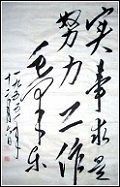 实事求是
努力工作
毛泽东